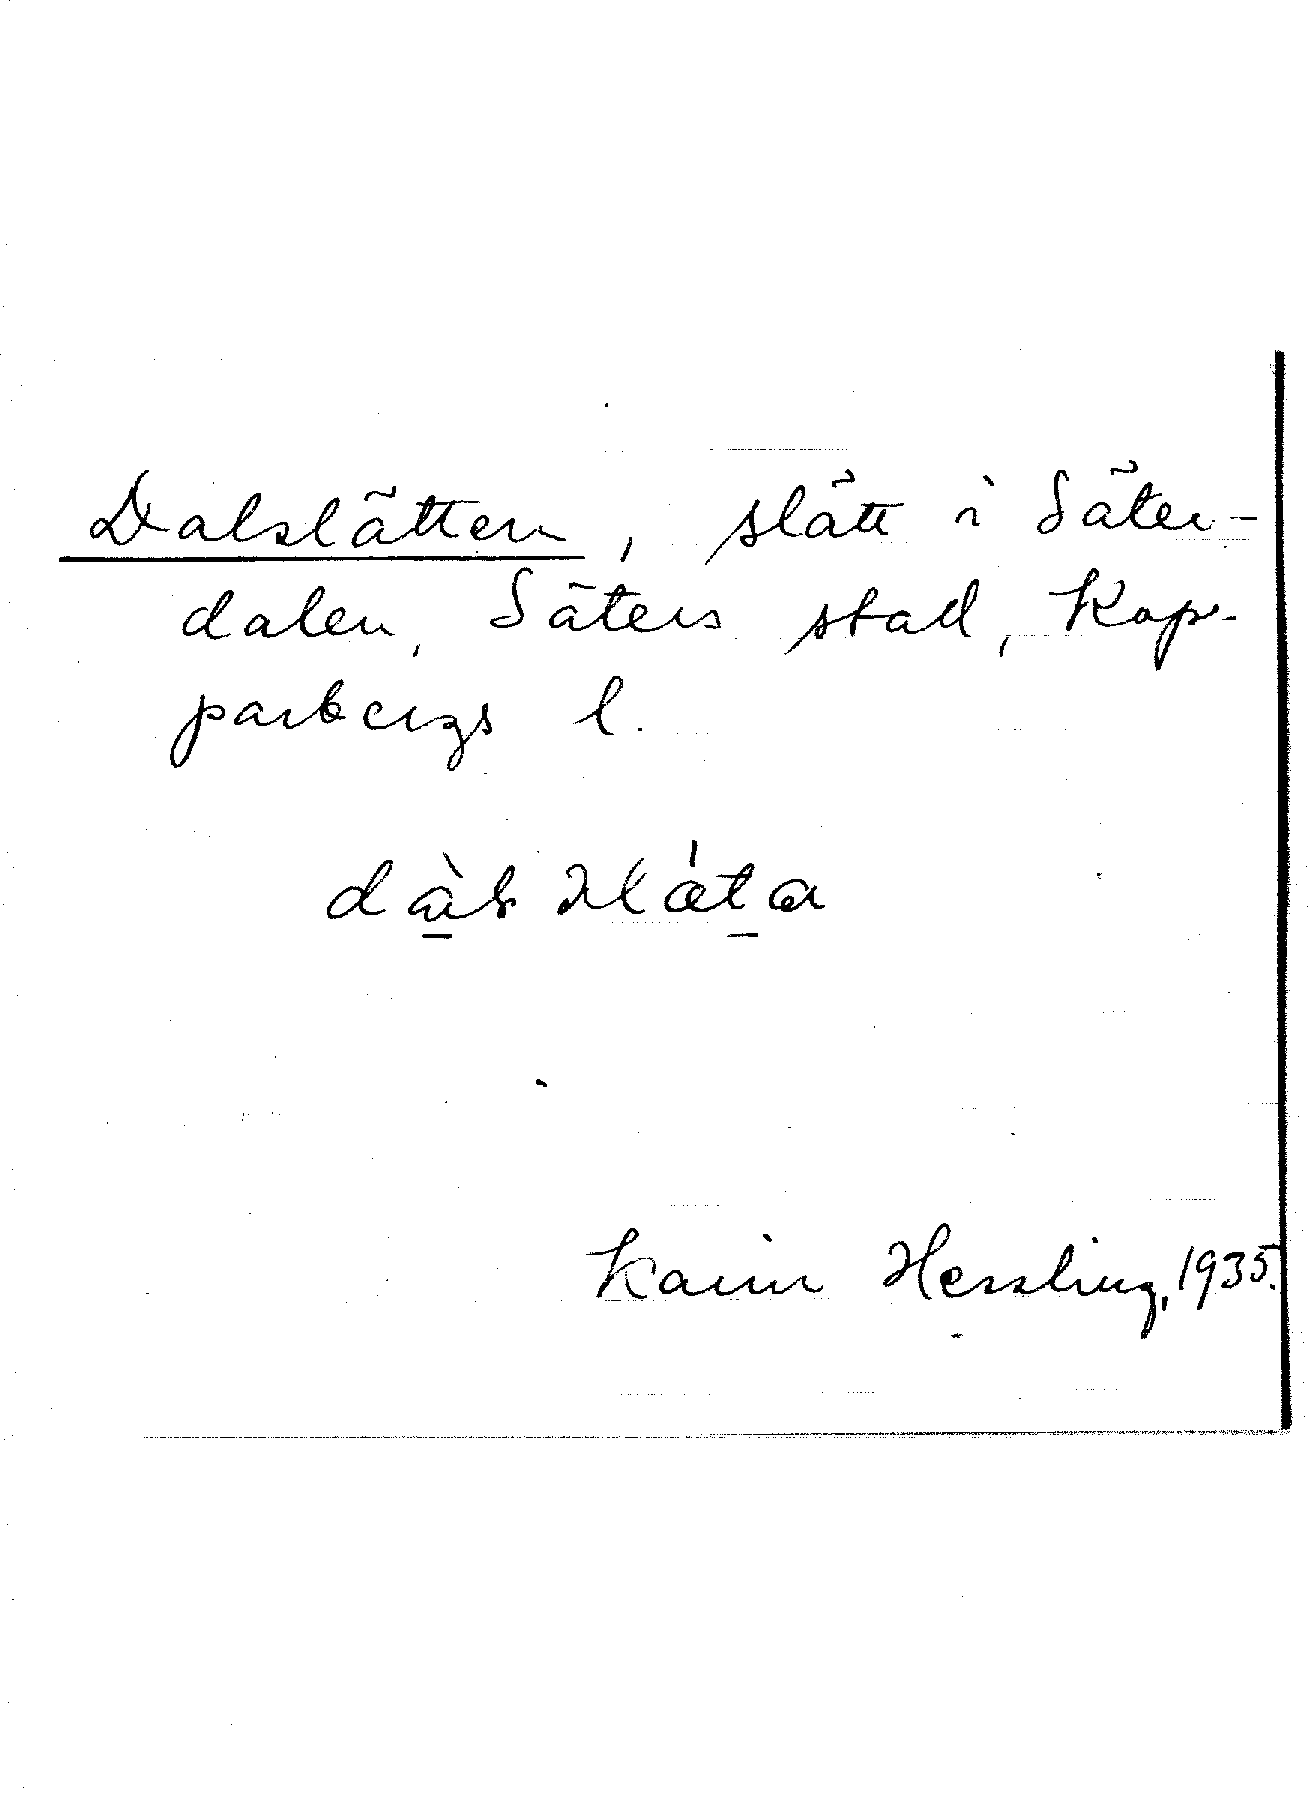 Dalslätten, slätt i Säter-
dalen, Säters stad, Kop-
parbergs l.
Karin Hessling, 1935.